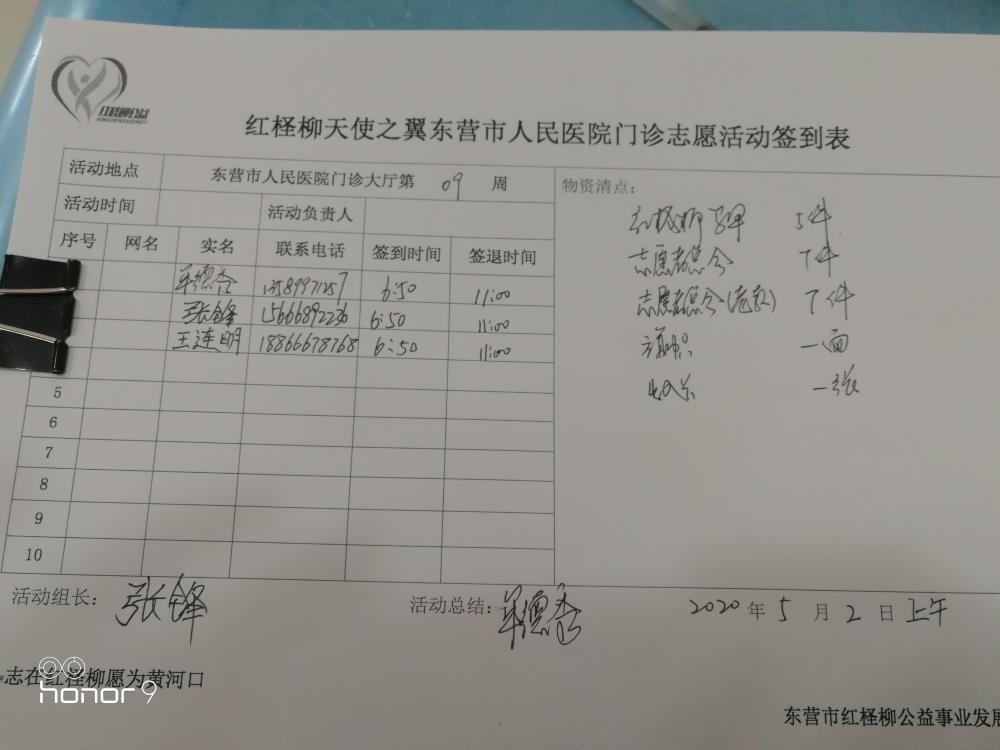 红柽柳公益
红柽柳天使之翼东营市人民医院门诊志愿活动签到表
活动地点 东营市人民医院门诊大厅第 09 周
活动时间 活动负责人
序号 网名 实名 联系电话 签到时间 签退时间
6:50 11:00
张锋 15666892236 6:50 11:00
王连明 18866678768 6:50 11:00
5
6
7
8
9
10
物资清点:
红柽柳 5件
志愿者 7件
志愿者 7件
旗帜 一面
一张
活动组长: 张锋 活动总结: 2020 年 5 月 2 日 上午
志在红柽柳愿为黄河口
honor 9
东营市红柽柳公益事业发展